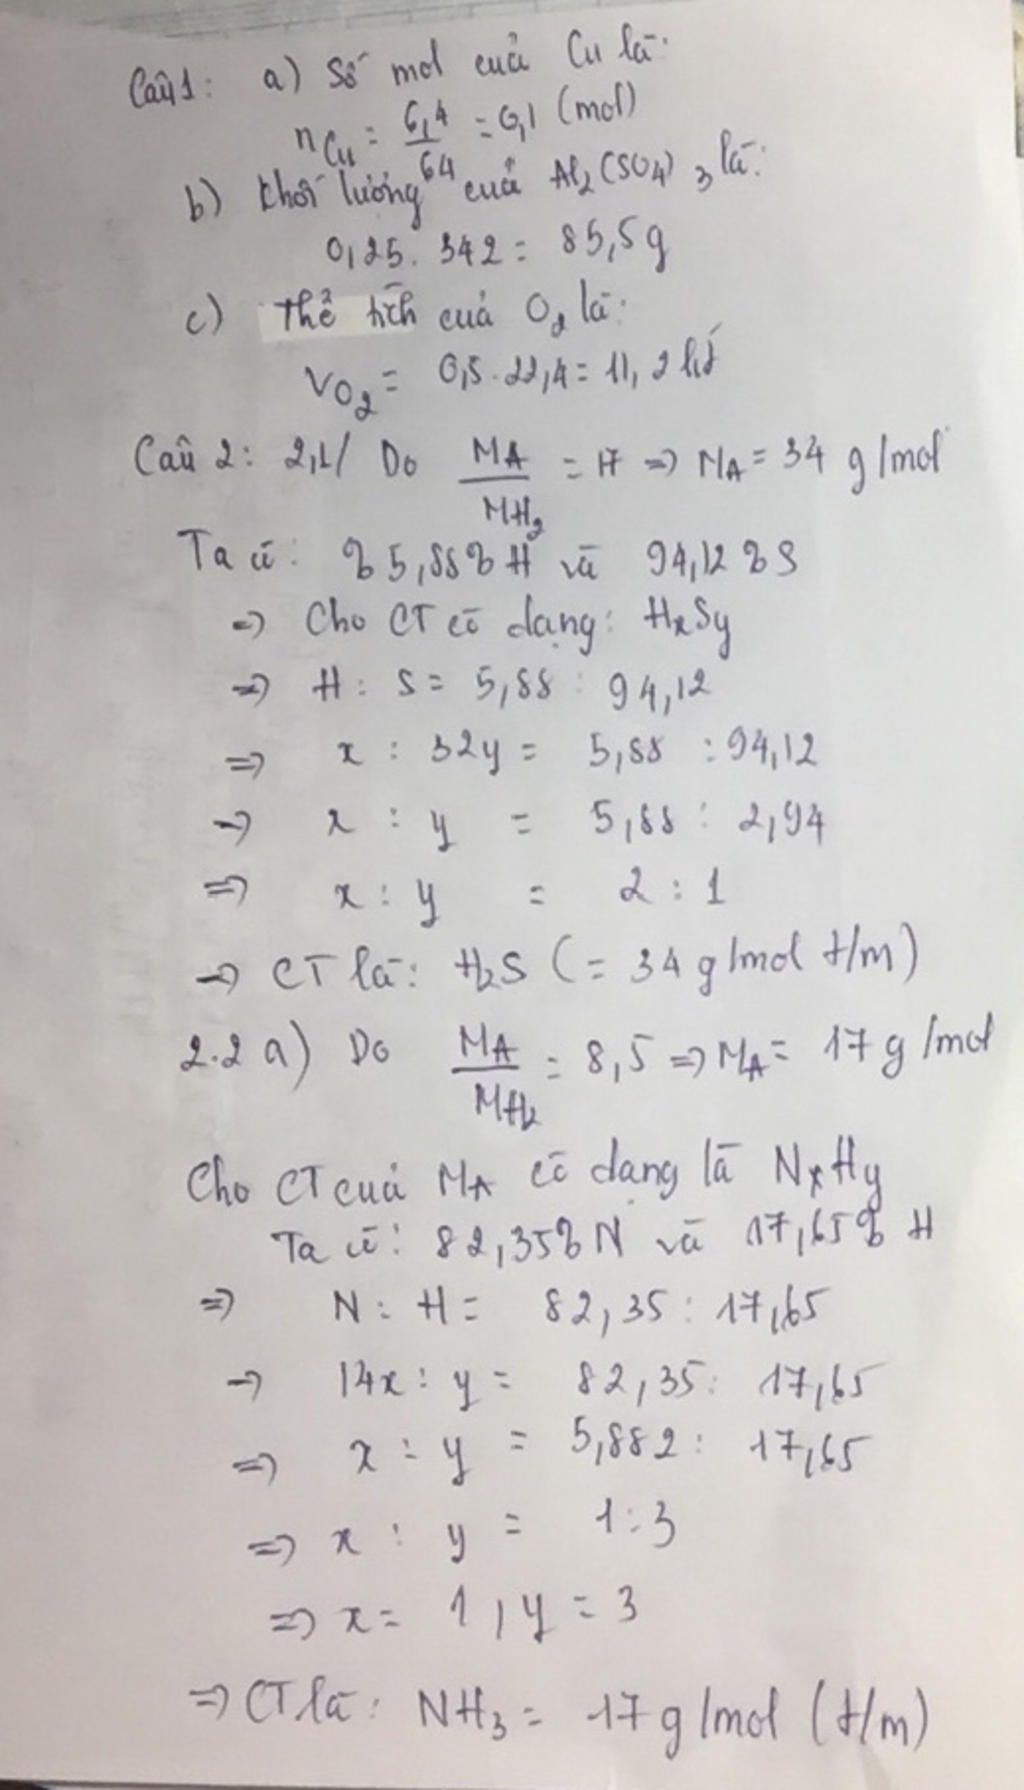 Câu 1: a) Số mol của Cu là:
nCu = 6,4/64 = 0,1 (mol)
b) Khối lượng của Al2(SO4)3 là:
0,25. 342 = 85,5g
c) Thể tích của O2 là:
VO2 = 0,5. 22,4 = 11,2 lít
Câu 2: 2,1/ Do MA/MH2 = 17 => MA = 34 g/mol
Ta có: % 5,88% H và 94,12 % S
=> Cho CT có dạng: HxSy
=> H : S = 5,88 : 94,12
=> x : 32y = 5,88 : 94,12
=> x : y = 5,88 : 2,94
=> x : y = 2 : 1
=> CT là: H2S (= 34 g/mol t/m)
2.2 a) Do MA/MH2 = 8,5 => MA = 17 g/mol
Cho CT của MA có dạng là NxHy
Ta có: 82,35% N và 17,65% H
=> N : H = 82,35 : 17,65
=> 14x : y = 82,35 : 17,65
=> x : y = 5,882 : 17,65
=> x : y = 1 : 3
=> x = 1, y = 3
=> CT là: NH3 = 17 g/mol (t/m)